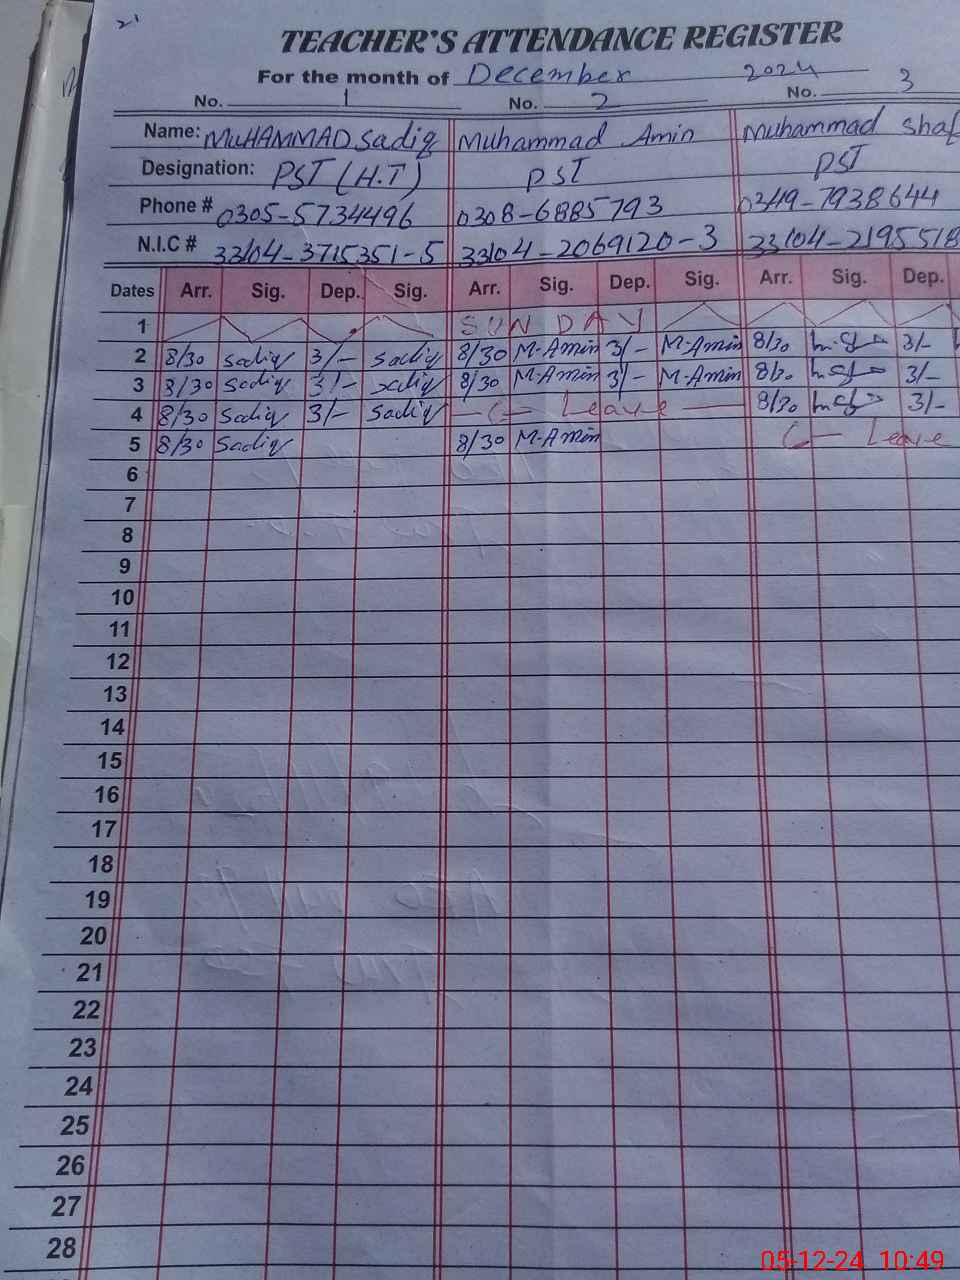 21
TEACHER'S ATTENDANCE REGISTER
For the month of December 2024
No. 1 No. 2 No. 3
Name: MUHAMMAD Sadiq Muhammad Amin Muhammad Shaf
Designation: PST (H.T) PST PST
Phone # 0305-5734496 0308-6885793 0349-7938644
N.I.C # 33104-3715351-5 33104-2069120-3 33104-2195518
Dates Arr. Sig. Dep. Sig. Arr. Sig. Dep. Sig. Arr. Sig. Dep.
1 SUNDAY
2 8/30 Sadiq 3/- Sadiq 8/30 M-Amin 3/- M-Amin 8/30 3/-
3 8/30 Sadiq 3/- Sadiq 8/30 M-Amin 3/- M-Amin 8/30 3/-
4 8/30 Sadiq 3/- Sadiq Leave 8/30 3/-
5 8/30 Sadiq 8/30 M-Amin Leave
6
7
8
9
10
11
12
13
14
15
16
17
18
19
20
21
22
23
24
25
26
27
28
05-12-24 10:49